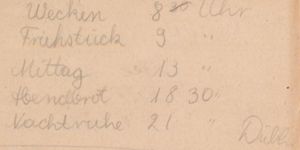 Wecken 8 30 Uhr
Frühstück 9 "
Mittag 13 "
Abendbrot 18 30 "
Nachtruhe 21 "